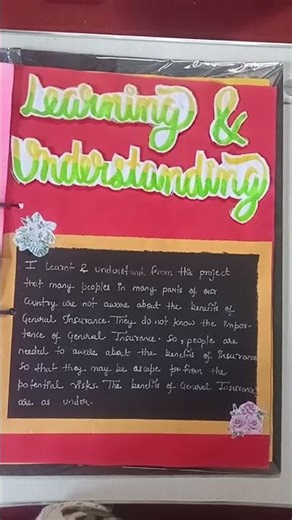 Learning &
Understanding
I learnt & understand from this project
that many peoples in many parts of our
Country are not aware about the benifits of
General Insurance. They do not know the impor-
tance of General Insurance. So, people are
needed to aware about the benefits of insurance
So that they may be escape for from the
potential risks. The benefits of General Insurance
are as under.